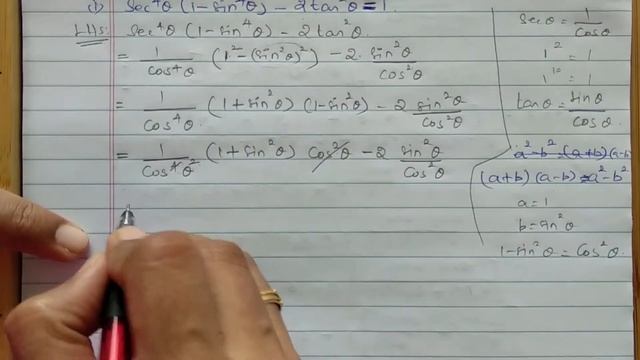 1) Sec⁴θ (1-sin⁴θ) - 2tan²θ = 1.
LHS: Sec⁴θ (1-sin⁴θ) - 2tan²θ.
= 1/cos⁴θ (1²-(sin²θ)²) - 2. sin²θ/cos²θ
= 1/cos⁴θ. (1+sin²θ) (1-sin²θ) - 2 sin²θ/cos²θ
= 1/cos⁴θ² (1+sin²θ) cos²θ - 2 sin²θ/cos²θ
secθ = 1/cosθ
1² = 1
1¹⁰ = 1
tanθ = sinθ/cosθ
a²-b² = (a+b)(a-b)
(a+b) (a-b) = a²-b²
a=1
b=sin²θ
1-sin²θ = cos²θ.